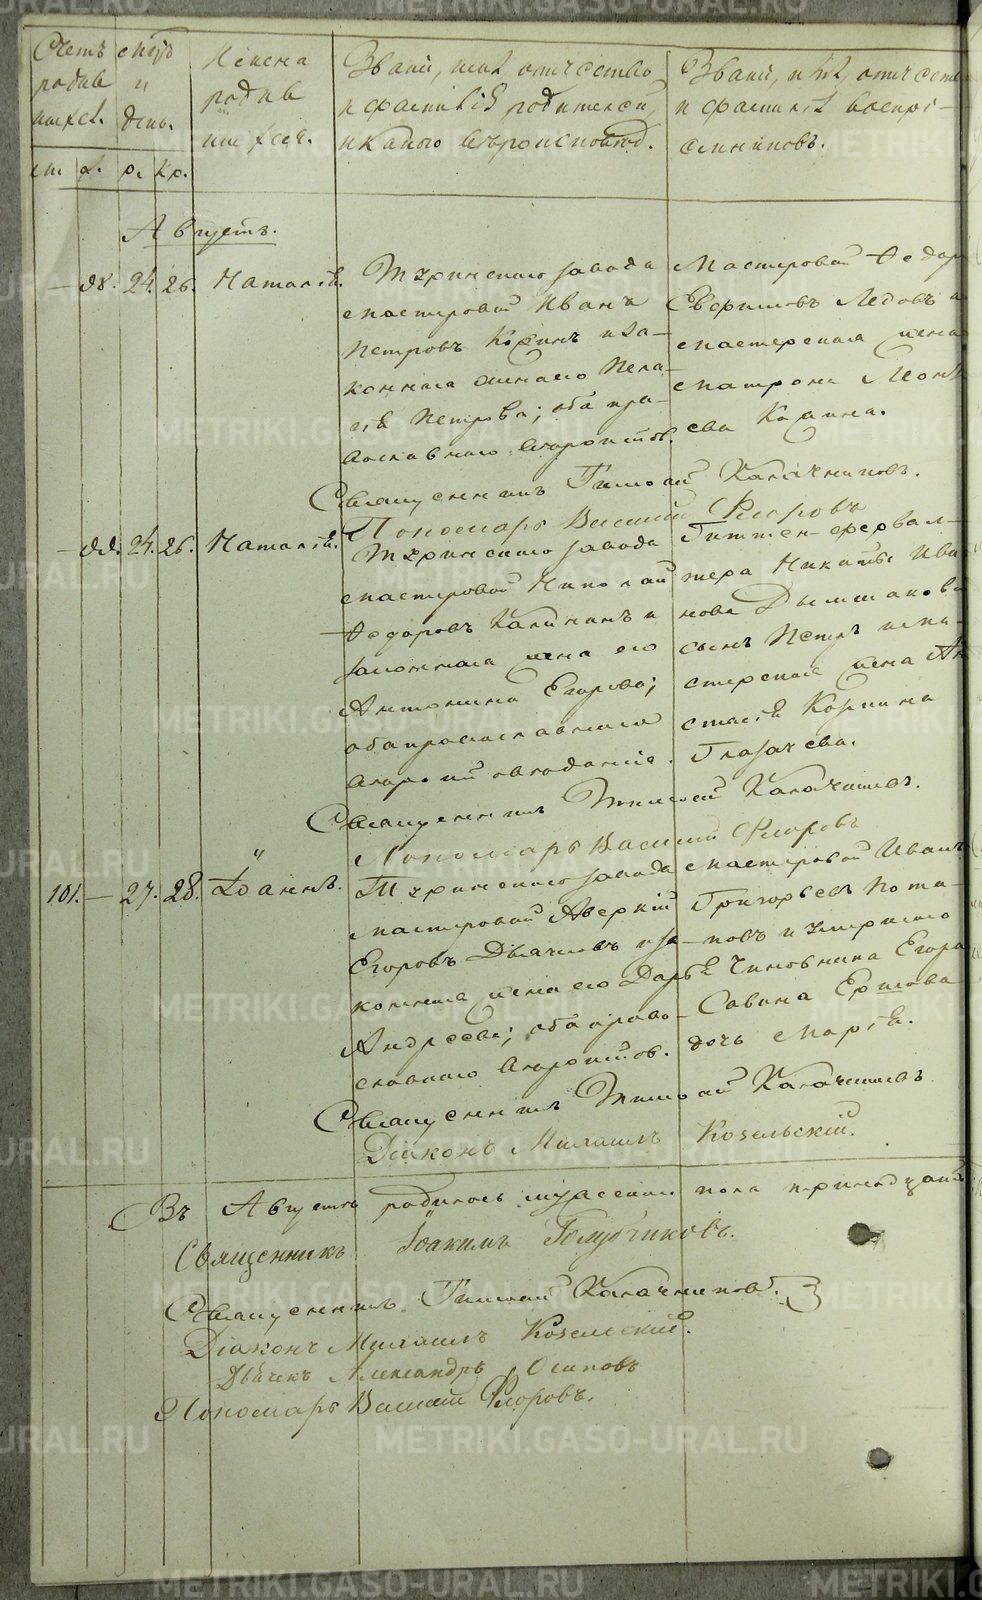 Счетъ
родив
шихся.
м.
ж.
и
день.
р.
кр.
Имена
родив
шихся.
Званіе, имя, отчество
и фамилія родителей,
и какого вѣроисповѣд.
Званіе, имя, отчество
и фамилія воспрі-
емниковъ.
Августъ.
88. 24. 26. Наталія.
Туринскаго завода
мастеровой Иванъ
Петровъ и за-
конная жена его Пела-
гія Петрова; оба пра-
вославнаго вѣроиспов.
Мастеровой Ѳедоръ
мастерская жена
Матрона
Священникъ Тимоѳей Калачниковъ.
Пономарь Василій Флоровъ
24. 26. Наталія.
Туринскаго завода
мастеровой Николай
Ѳедоровъ Калининъ и
законная жена его
Антонина Егорова;
оба православнаго
вѣроисповѣданія.
Гиттен-фервал-
тера Никиты Ива
нова
сынъ Петръ и ма-
стерская жена Ана
стасія Карпина
Глазачева.
Священникъ Тимоѳей Калачниковъ.
Пономарь Василій Флоровъ
101. — 27. 28. Іоаннъ.
Туринскаго завода
мастеровой Аверкій
Егоровъ Дьячковъ и за-
конная жена его Дарья
Андреева; оба право-
славнаго вѣроиспов.
мастеровой Иванъ
Григорьевъ Пота-
повъ и умершаго
чиновника Егора
Савина Ершова
дочь Марія.
Священникъ Тимоѳей Калачниковъ
Діаконъ Михаилъ Козельскій.
Въ Августѣ родилось мужеска пола тринадцать
Священникъ Іоакимъ Голубчиковъ.
Священникъ Тимоѳей Калачниковъ.
Діаконъ Михаилъ Козельскій.
Дьячекъ Александръ Осиповъ
Пономарь Василій Флоровъ.
METRIKI.GASO-URAL.RU